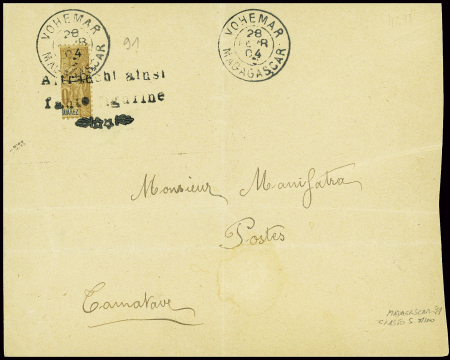 VOHEMAR
28
04
MADAGASCAR
91
VOHEMAR
28
04
MADAGASCAR
Affranchi ainsi
faute figurine
Monsieur Manifatra
Postes
Tamatave
MADAGASCAR